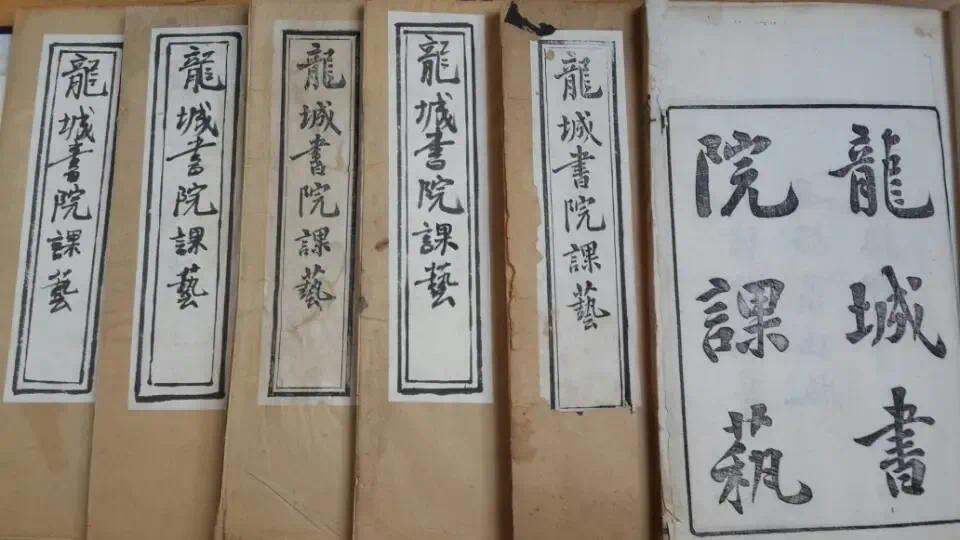 龍城書
院課萟
龍城書院課藝
龍城書院課藝
龍城書院課藝
龍城書院課藝
龍城書院課藝